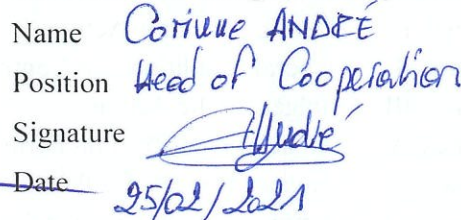 Name Corinne ANDRÉ
Position Head of Cooperation
Signature CAndré
Date 25/02/2021